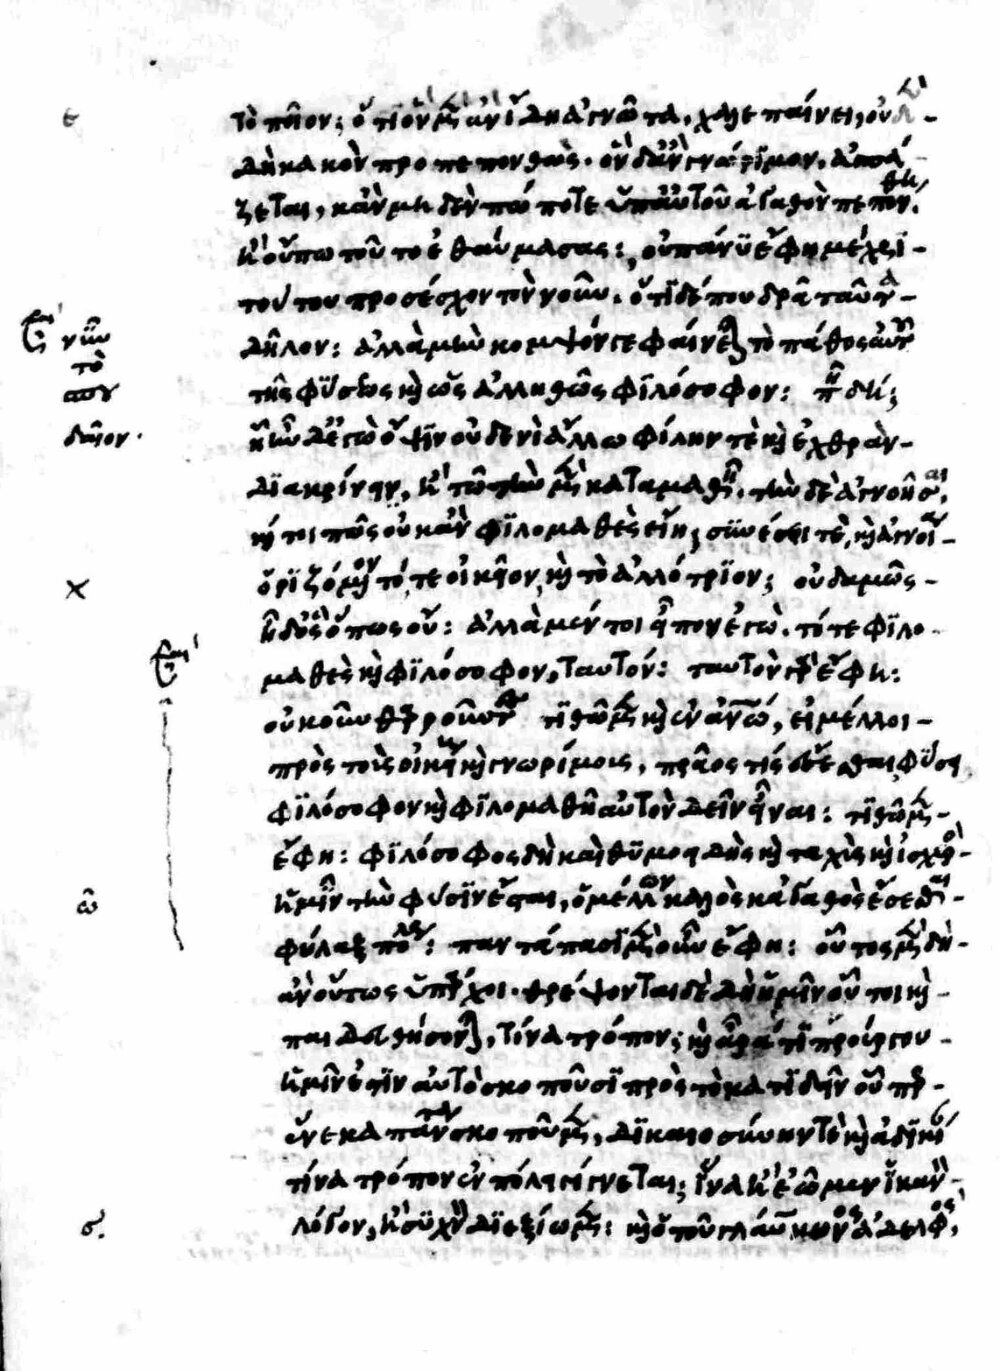 ε
τὸ ποῖον; ὅτι ὃν μὲν ἂν ἴδῃ ἀγνῶτα, χαλεπαίνει, οὐδ-
δὴ κακὸν προπεπονθώς· ὃν δ' ἂν γνώριμον, ἀσπά-
ζεται, κἂν μηδὲν πώποτε ὑπ' αὐτοῦ ἀγαθὸν πεπόνθη.
ἢ οὔπω τοῦτο ἐθαύμασας: οὐ πάνϋ ἔφη μέχρϊ-
τούτου προσέσχον τὸν νοῦν. ὅτι δέ που δρᾶ ταῦτα-
δῆλον: ἀλλὰ μὴν κομψόν γε φαίνεται τὸ πάθος αὐτοῦ
τῆς φϋσεως καὶ ὡς ἀλληθῶς φϊλόσοφον: πῆ δή;
ἧ ἦν δ' ἐγὼ ὄψϊν οὐδενὶ ἄλλω φίλην τὲ καὶ ἐχθρὰν-
δϊακρίνειν, ἢ τῶ τὴν μὲν καταμαθεῖν, τὴν δὲ ἀγνοῆσαι,
καί τοι πῶς οὐκ ἂν φϊλομαθὲς εἴη; συνέσει τὲ, καὶ ἀγνοία-
×
ὁρϊζόμενον τό τε οἰκεῖον καὶ τὸ ἀλλότρϊον; οὐδαμῶς-
ὅπως οὔ: ἀλλὰ μέντοι εἶπον ἐγὼ. τό τε φϊλο-
μαθὲς καὶ φϊλόσοφον, ταυτόν: ταυτὸν γὰρ ἔφη:
οὐκοῦν θαρροῦντες τιθῶμεν καὶ ἐν ἀνθρώπω, εἰ μέλλοι-
πρὸς τοὺς οἰκείους καὶ γνωρίμους, πρᾶος τίς ἔσεσθαι, φϋσει
φϊλόσοφον καὶ φϊλομαθῆ αὐτὸν δεῖν εἶναι: τϊθῶμεν-
ἔφη: φϊλόσοφος δὴ καὶ θϋμοειδὴς καὶ ταχὺς καὶ ἰσχυρὸς-
ῶ
ἡμῖν τὴν φύσϊν ἔσται, ὁ μέλλων καλὸς κἀγαθὸς ἔσεσθαι-
φύλαξ πόλεως: παντάπασϊ μὲν οὖν ἔφη: οὗτος μὲν δὴ-
ἂν οὕτως ὑπάρχοι. θρέψονται δὲ δὴ ἡμῖν οὗτοι καὶ-
παιδευθήσονται, τίνα τρόπον; καὶ ἆρά τϊ προὔργου-
ἡμῖν ἐστϊν αὐτὸ σκοποῦσϊ πρὸς τὸ κατϊδεῖν οὗπερ-
ἕνεκα πάντα σκοποῦμεν, δϊκαιοσύνην τὲ καὶ ἀδϊκίαν
τίνα τρόπον ἐν πόλει γίγνεται; ἵνα μὴ ἐῶμεν ἱκανὸν-
σ.
λόγον, ἢ συχνὸν δϊεξίωμεν: καὶ ὁ τοῦ γλαύκωνος ἀδελφὸς,